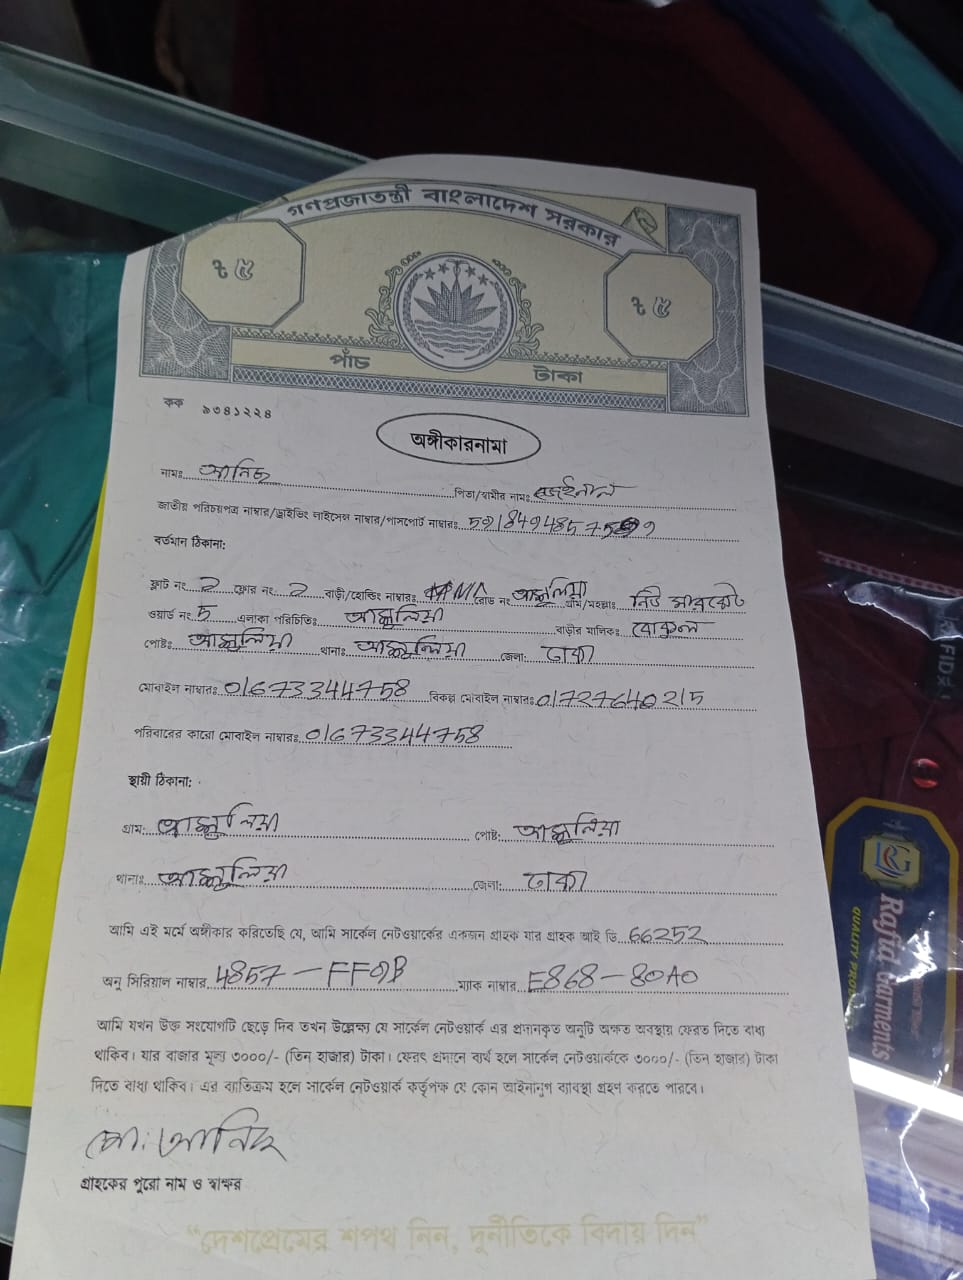 গণপ্রজাতন্ত্রী বাংলাদেশ সরকার
৳ ৫ ৳ ৫
পাঁচ টাকা
কক ৯৩৪১২২৪
অঙ্গীকারনামা
নামঃ আনিছ পিতা/স্বামীর নামঃ
জাতীয় পরিচয়পত্র নাম্বার/ড্রাইভিং লাইসেন্স নাম্বার/পাসপোর্ট নাম্বারঃ
বর্তমান ঠিকানা:
ফ্লাট নং 2 ফ্লোর নং 2 বাড়ী/হোল্ডিং নাম্বারঃ N/A রোড নং আশুলিয়া গ্রাম/মহল্লাঃ নিউ মারকেট
ওয়ার্ড নং 5 এলাকা পরিচিতিঃ আশুলিয়া বাড়ীর মালিকঃ বোকুল
পোষ্টঃ আশুলিয়া থানাঃ আশুলিয়া জেলা: ঢাকা
মোবাইল নাম্বারঃ 01673344758 বিকল্প মোবাইল নাম্বারঃ 01727640215
পরিবারের কারো মোবাইল নাম্বারঃ 01673344758
স্থায়ী ঠিকানা:
গ্রাম: আশুলিয়া পোষ্ট: আশুলিয়া
থানাঃ আশুলিয়া জেলা: ঢাকা
আমি এই মর্মে অঙ্গীকার করিতেছি যে, আমি সার্কেল নেটওয়ার্কের একজন গ্রাহক যার গ্রাহক আই ডি 66252
অনু সিরিয়াল নাম্বার 4857-FF9B ম্যাক নাম্বার E868-80A0
আমি যখন উক্ত সংযোগটি ছেড়ে দিব তখন উল্লেক্ষ্য যে সার্কেল নেটওয়ার্ক এর প্রদানকৃত অনুটি অক্ষত অবস্থায় ফেরত দিতে বাধ্য
থাকিব। যার বাজার মূল্য ৩০০০/- (তিন হাজার) টাকা। ফেরৎ প্রদানে ব্যর্থ হলে সার্কেল নেটওয়ার্ককে ৩০০০/- (তিন হাজার) টাকা
দিতে বাধ্য থাকিব। এর ব্যতিক্রম হলে সার্কেল নেটওয়ার্ক কর্তৃপক্ষ যে কোন আইনানুগ ব্যবস্থা গ্রহণ করতে পারবে।
মো: আনিছ
গ্রাহকের পুরো নাম ও স্বাক্ষর
"দেশপ্রেমের শপথ নিন, দুর্নীতিকে বিদায় দিন"
RG
Rafid Garments